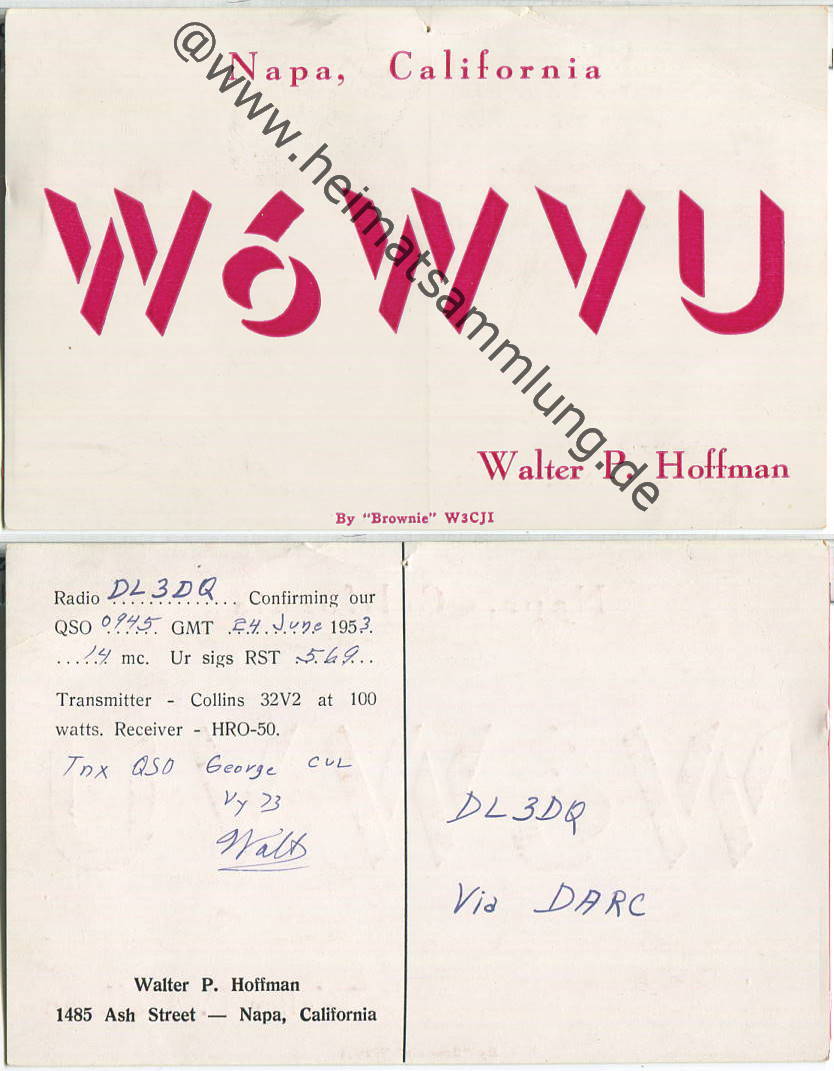 Napa, California
@www.heimatsammlung.de
W6WVU
Walter P. Hoffman
By "Brownie" W3CJI
Radio DL3DQ Confirming our
QSO 0945 GMT 24 June 1953
14 mc. Ur sigs RST 569
Transmitter - Collins 32V2 at 100
watts. Receiver - HRO-50.
Tnx QSO George CUL
Vy 73
Walt
DL3DQ
Via DARC
Walter P. Hoffman
1485 Ash Street — Napa, California